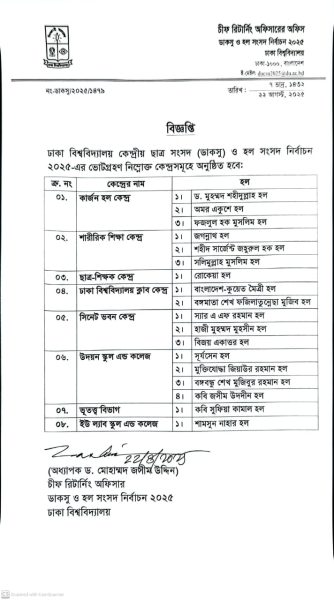 চীফ রিটার্নিং অফিসারের অফিস
ডাকসু ও হল সংসদ নির্বাচন ২০২৫
ঢাকা বিশ্ববিদ্যালয়
ঢাকা-১০০০, বাংলাদেশ
ই-মেইল: ducsu2025@du.ac.bd
নং-ডাকসু/২০২৫/১৪৭৯
৭ ভাদ্র, ১৪৩২
তারিখ :
২২ আগস্ট, ২০২৫
বিজ্ঞপ্তি
ঢাকা বিশ্ববিদ্যালয় কেন্দ্রীয় ছাত্র সংসদ (ডাকসু) ও হল সংসদ নির্বাচন
২০২৫-এর ভোটগ্রহণ নিম্নোক্ত কেন্দ্রসমূহে অনুষ্ঠিত হবে:
ক্র. নং কেন্দ্রের নাম হল
০১. কার্জন হল কেন্দ্র ১। ড. মুহম্মদ শহীদুল্লাহ হল
২। অমর একুশে হল
৩। ফজলুল হক মুসলিম হল
০২. শারীরিক শিক্ষা কেন্দ্র ১। জগন্নাথ হল
২। শহীদ সার্জেন্ট জহুরুল হক হল
৩। সলিমুল্লাহ মুসলিম হল
০৩. ছাত্র-শিক্ষক কেন্দ্র ১। রোকেয়া হল
০৪. ঢাকা বিশ্ববিদ্যালয় ক্লাব কেন্দ্র ১। বাংলাদেশ-কুয়েত মৈত্রী হল
২। বঙ্গমাতা শেখ ফজিলাতুন্নেছা মুজিব হল
০৫. সিনেট ভবন কেন্দ্র ১। স্যার এ এফ রহমান হল
২। হাজী মুহম্মদ মুহসীন হল
৩। বিজয় একাত্তর হল
০৬. উদয়ন স্কুল এন্ড কলেজ ১। সূর্যসেন হল
২। মুক্তিযোদ্ধা জিয়াউর রহমান হল
৩। বঙ্গবন্ধু শেখ মুজিবুর রহমান হল
৪। কবি জসীম উদদীন হল
০৭. ভূতত্ত্ব বিভাগ ১। কবি সুফিয়া কামাল হল
০৮. ইউ ল্যাব স্কুল এন্ড কলেজ ১। শামসুন নাহার হল
২২/৪/২০২৫
(অধ্যাপক ড. মোহাম্মদ জসীম উদ্দিন)
চীফ রিটার্নিং অফিসার
ডাকসু ও হল সংসদ নির্বাচন ২০২৫
ঢাকা বিশ্ববিদ্যালয়
CS Scanned with CamScanner